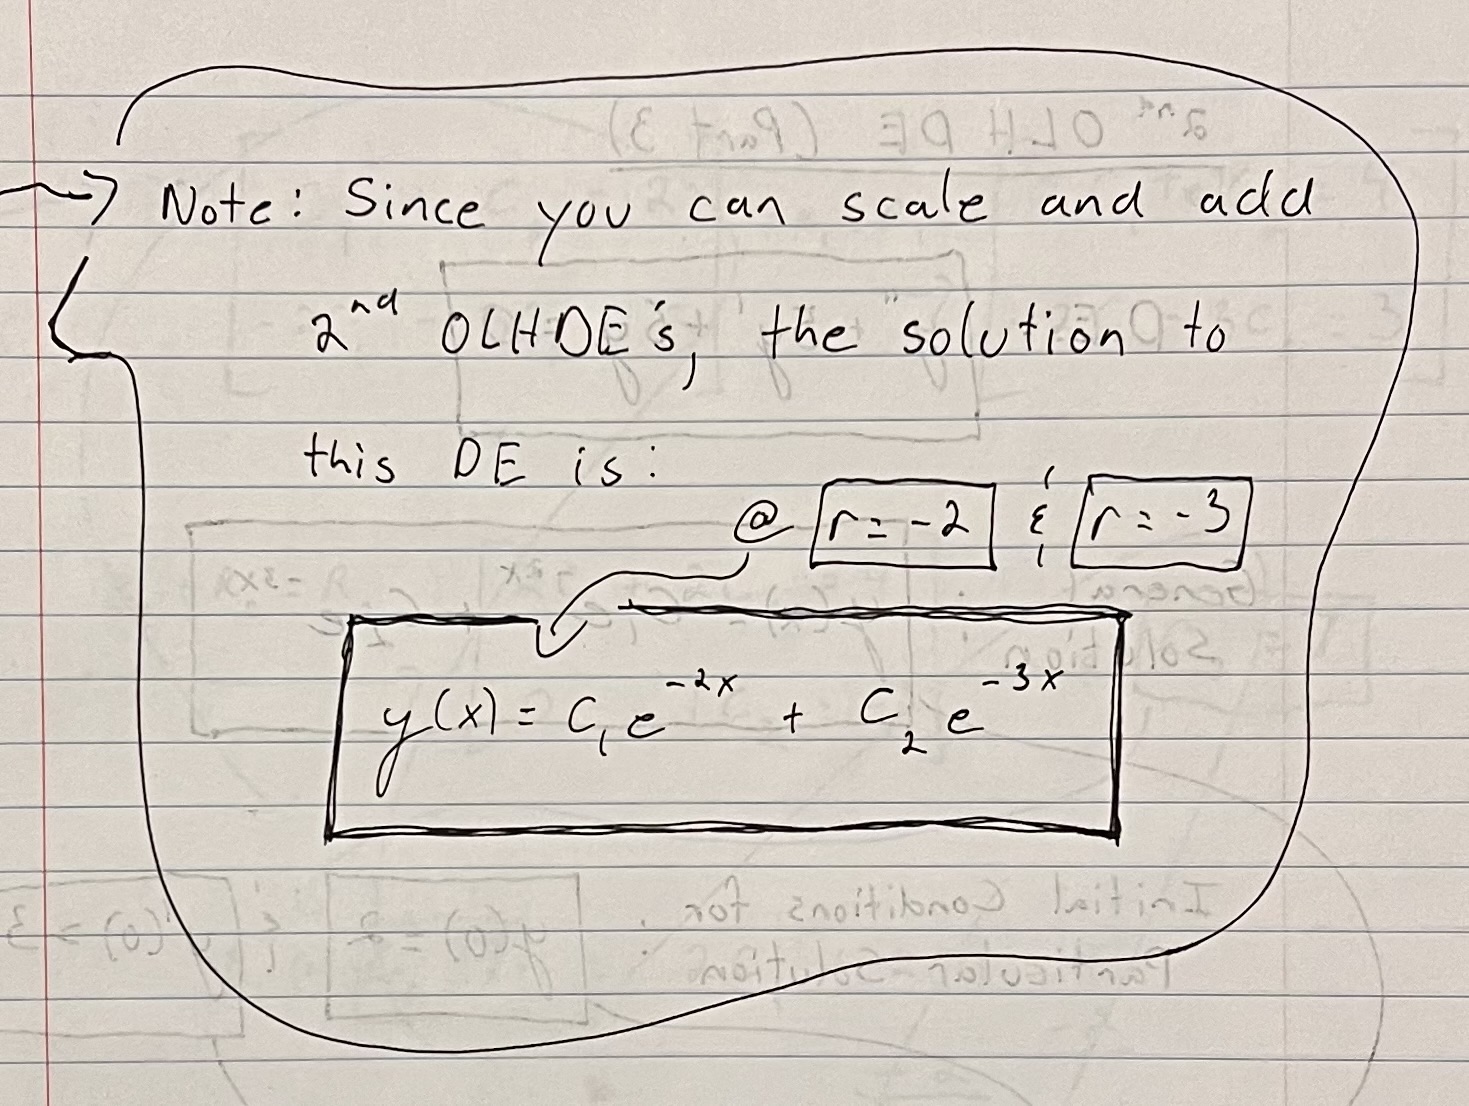 Note: Since you can scale and add
2nd OLHDE's, the solution to
this DE is:
@ r = -2 & r = -3
y(x) = C₁e^-2x + C₂e^-3x